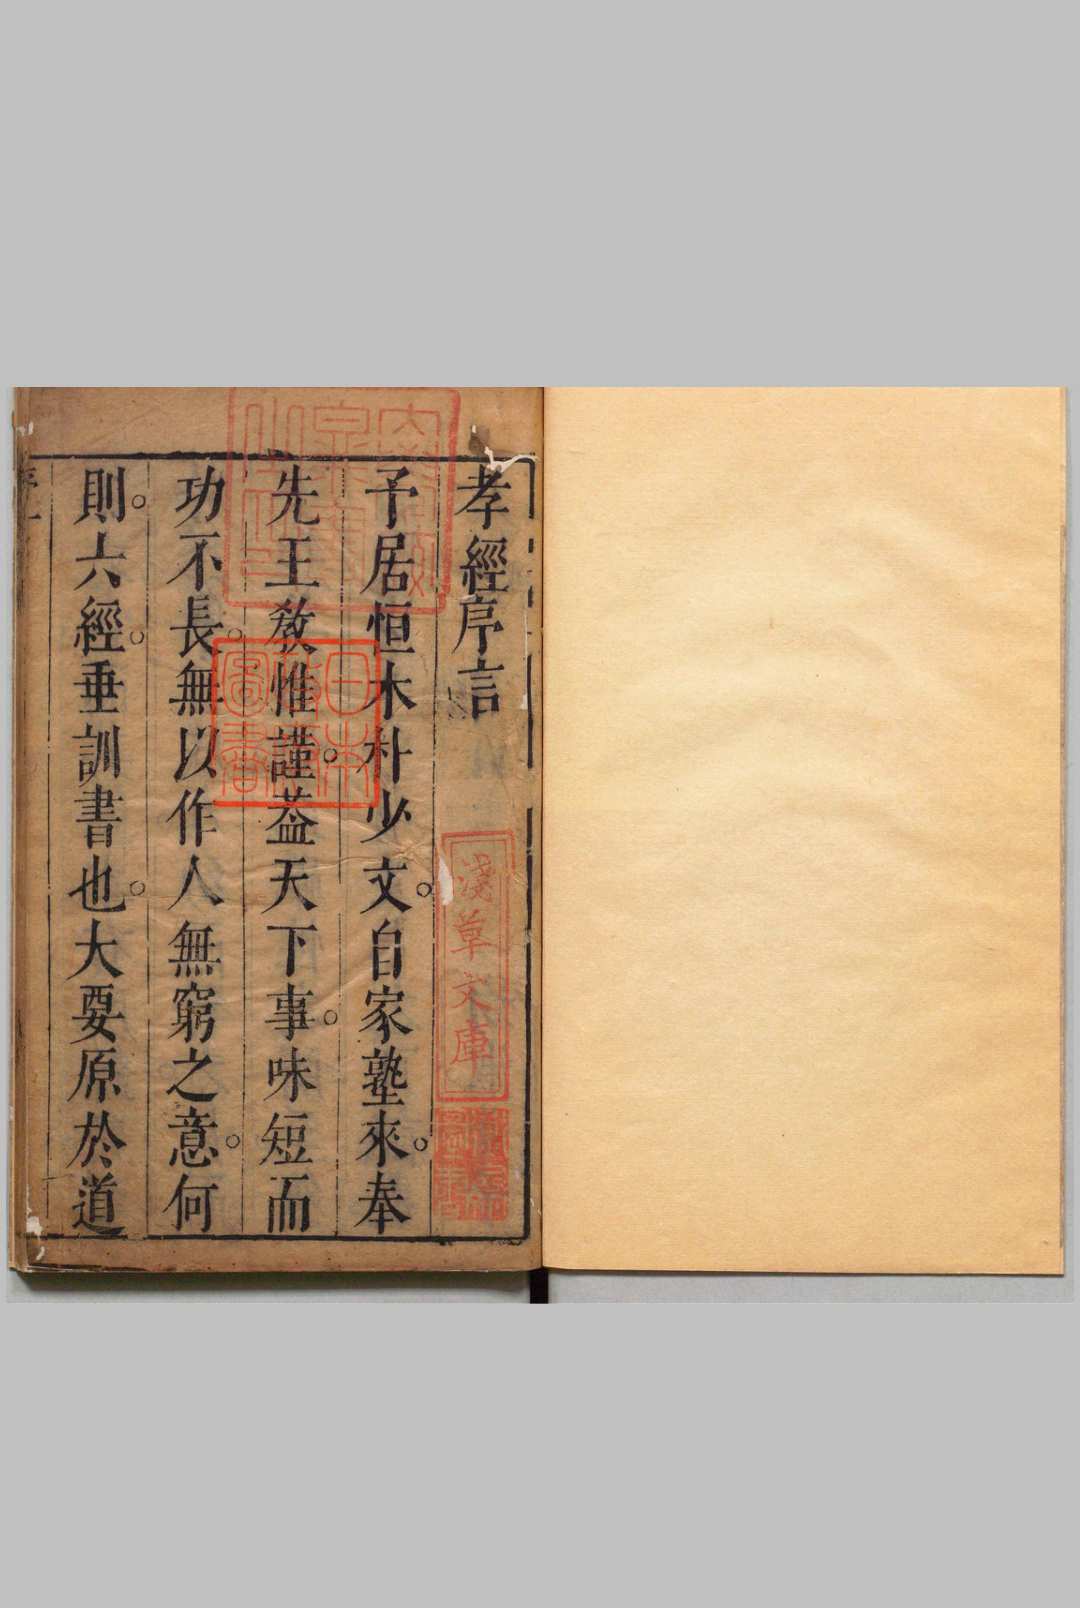 孝經序言
予居恒木朴少文。自家塾來。奉
先王教惟謹。葢天下事。味短而
功不長。無以作人無窮之意。何
則。六經。垂訓書也。大要原於道
日本
政府
圖書
淺草文庫